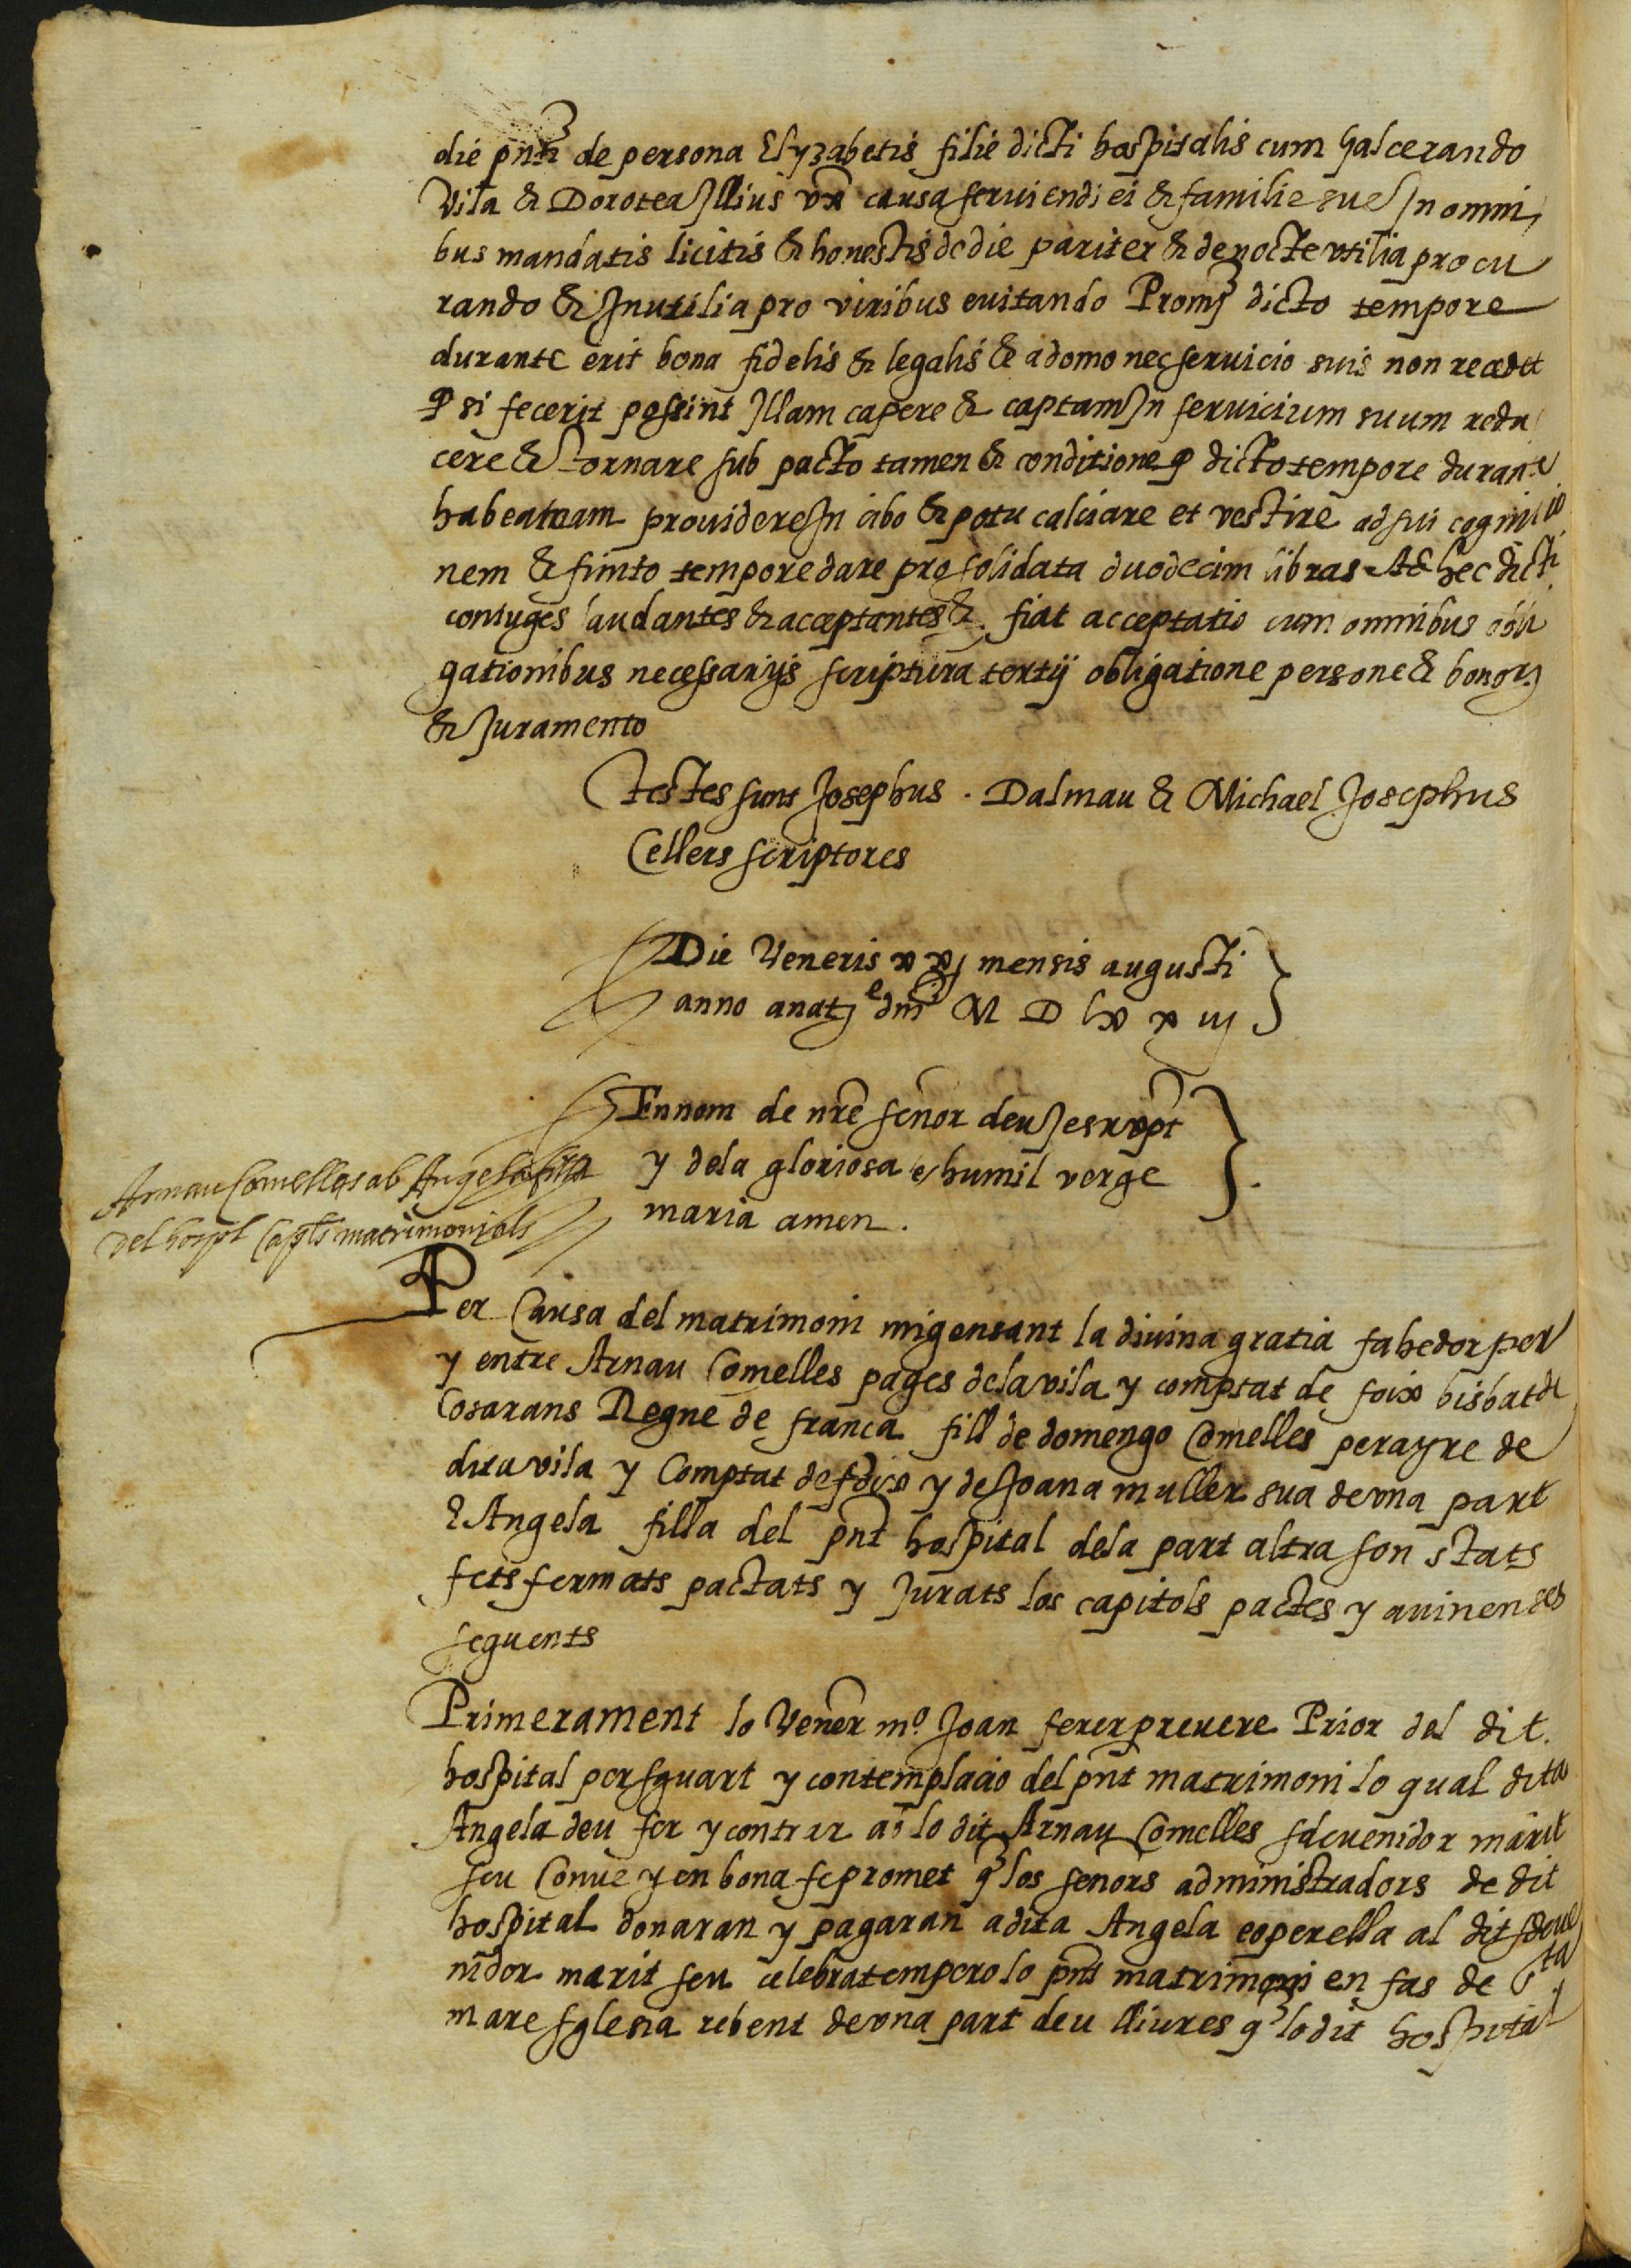 die pnti de persona Elyzabetis filie dicti hospitalis cum galcerando
Vila & Dorotea Jllius vx causa seruiendi ei & familie sue Jn omni
bus mandatis licitis & honestis de die pariter & de nocte vtilia procu
rando & Jnutilia pro viribus euitando Promj dicto tempore
durante erit bona fidelis & legalis & a domo nec seruicio suis non recedet
q si fecerit possint Jllam capere & captam Jn seruicium suum redu
cere & tornare sub pacto tamen & conditione q dicto tempore durante
habeatnam prouidere Jn cibo & potu calciare et vestire ad sui cognitio
nem & finito tempore dare pro solidata duodecim libras Ad hec dicti
coniuges laudantes & acceptantes &. fiat acceptatio cum omnibus obli
gationibus necessarijs scriptura tertij obligatione persone & bonorj
& Juramento
testes sunt Josephus . Dalmau & Michael Josephus
Cellers scriptores
Die Veneris xxj mensis augusti
anno anatj e dni M D lxx iij
En nom de nre senor deu Jesuxpt
y dela gloriosa e humil verge
maria amen .
Arnau Comelles ab Angela filla
del hospl Capls matrimonials
Per Causa del matrimoni migensant la diuina gratia fahedor per
y entre Arnau Comelles pages dela vila y comptat de foix bisbat de
Cosarans Regne de franca fill de domengo Comelles perayre de
dita vila y Comptat de foix y de Joana muller sua de vna part
E Angela filla del pnt hospital dela part altra son stats
fets fermats pactats y Jurats los capitols pactes y auinences
seguents
Primerament lo Vener mo. Joan ferer preuere Prior del dit.
hospital per sguart y contemplacio del pnt matrimoni lo qual dita
Angela deu fer y contrar ab lo dit Arnau Comelles sdeuenidor marit
seu Conue y en bona fe promet q los senors administradors de dit
hospital donaran y pagaran a dita Angela e o per ella al dit sdeue
nidor marit seu celebrat empero lo pnt matrimoni en fas de sta
mare sglesia rebent de vna part deu lliures q lo dit hospital